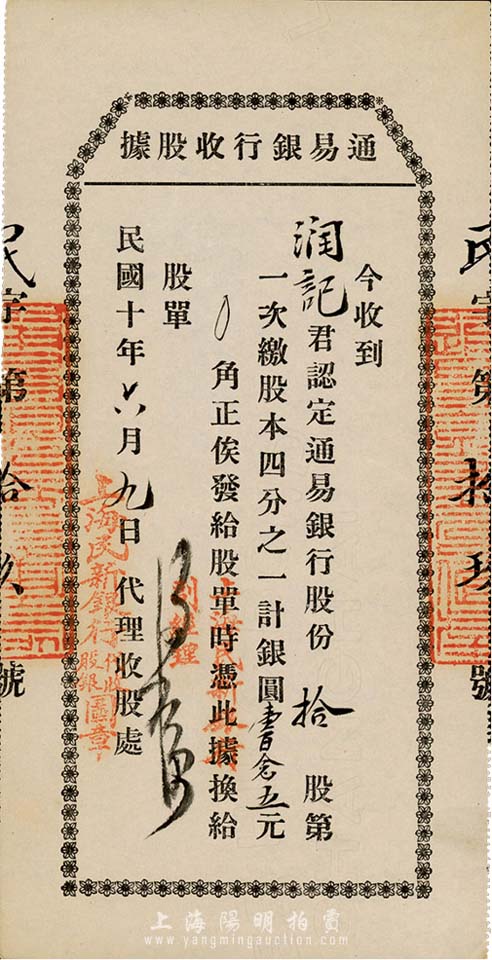 通易銀行收股據
今收到
潤記君認定通易銀行股份拾股第
一次繳股本四分之一計銀圓壹百念五元
角正俟發給股單時憑此據換給
股單
民國十年六月九日 代理收股處
上海民新銀行代收股銀圖章
副經理
民字第拾玖號
上海陽明拍賣
www.yangmingauction.com